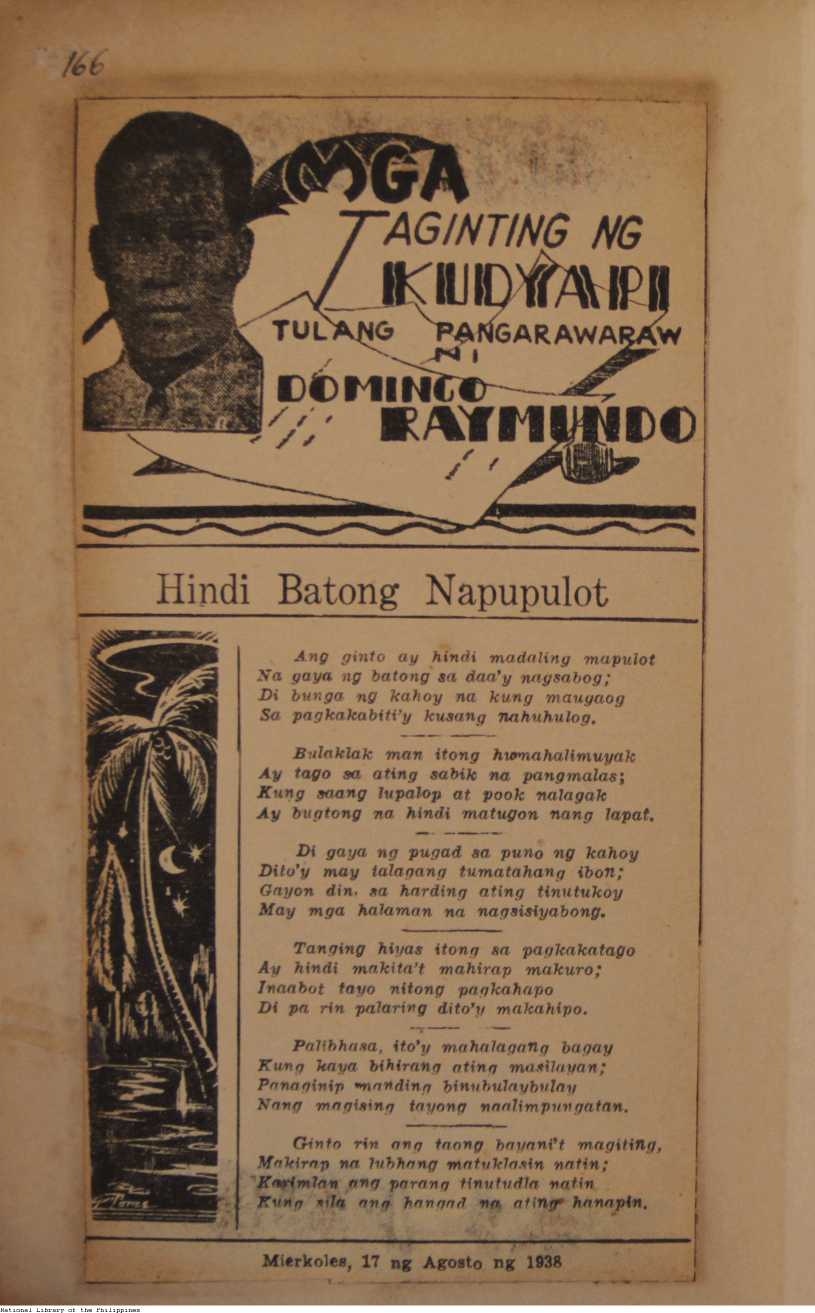 166
MGA
TAGINTING NG
KUDYAPI
TULANG PANGARAWARAW
NI
DOMINGO
RAYMUNDO
Hindi Batong Napupulot
Ang ginto ay hindi madaling mapulot
Na gaya ng batong sa daa'y nagsabog;
Di bunga ng kahoy na kung maugaog
Sa pagkakabiti'y kusang nahuhulog.
Bulaklak man itong humahalimuyak
Ay tago sa ating sabik na pangmalas;
Kung saang lupalop at pook nalagak
Ay bugtong na hindi matugon nang lapat.
Di gaya ng pugad sa puno ng kahoy
Dito'y may talagang tumatahang ibon;
Gayon din. sa harding ating tinutukoy
May mga halaman na nagsisiyabong.
Tanging hiyas itong sa pagkakatago
Ay hindi makita't mahirap makuro;
Inaabot tayo nitong pagkahapo
Di pa rin palaring dito'y makahipo.
Palibhasa, ito'y mahalagang bagay
Kung kaya bihirang ating masilayan;
Panaginip manding binubulaybulay
Nang magising tayong naalimpungatan.
Ginto rin ang taong bayani't magiting,
Makirap na lubhang matuklasin natin;
Karimlan ang parang tinutudla natin
Kung sila ang hangad na ating hanapin.
Mierkoles, 17 ng Agosto ng 1938
National Library of the Philippines